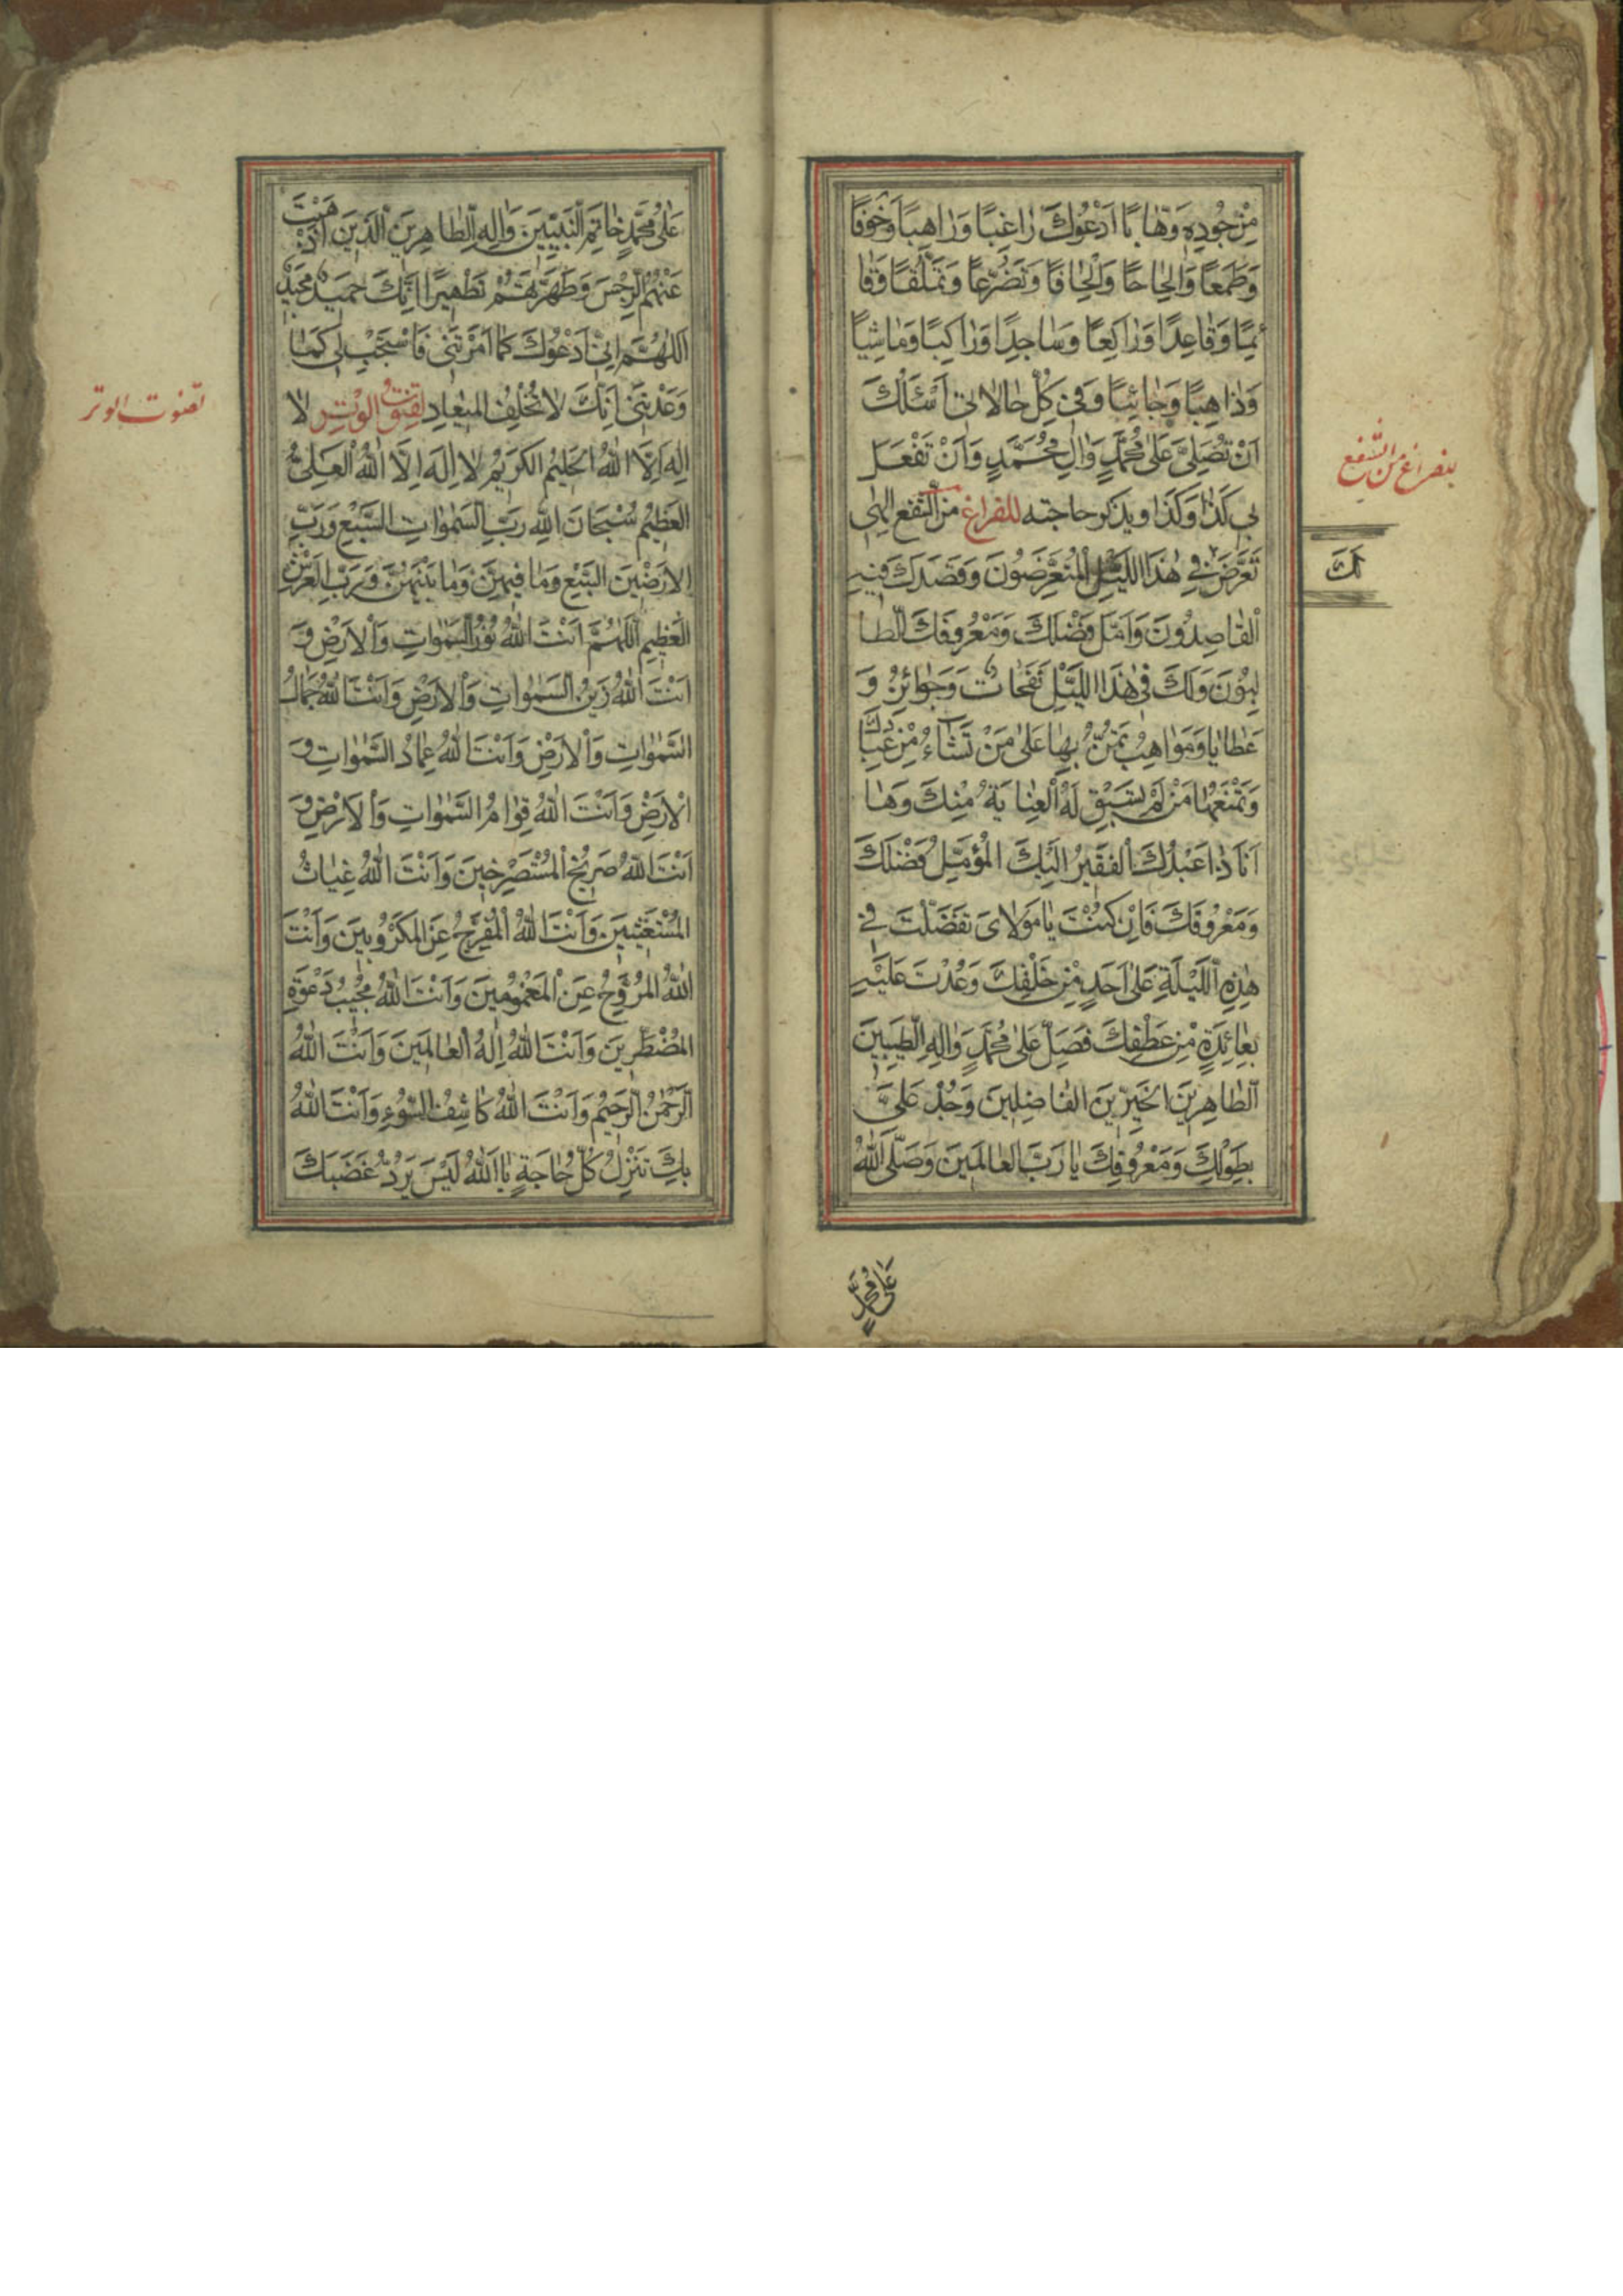 مِنْ جُودِهِ وَهَّابًا اَدْعُوكَ رَاغِبًا وَرَاهِبًا وَخَوْفًا
وَطَمَعًا وَاِلْحَاحًا وَاِلْحَافًا وَتَضَرُّعًا وَتَمَلُّقًا وَقَا
ئِمًا وَقَاعِدًا وَرَاكِعًا وَسَاجِدًا وَرَاكِبًا وَمَاشِيًا
وَذَاهِبًا وَجَائِيًا وَفِي كُلِّ حَالَاتِي اَسْئَلُكَ
اَنْ تُصَلِّيَ عَلَى مُحَمَّدٍ وَالِ مُحَمَّدٍ وَاَنْ تَفْعَلَ
بِي كَذَا وَكَذَا ويذكر حاجته للفراغ من الشفع اِلٰهِي
تَعَرَّضَ فِي هٰذَا اللَّيْلِ الْمُتَعَرِّضُونَ وَقَصَدَكَ فِيهِ
الْقَاصِدُونَ وَاَمَّلَ فَضْلَكَ وَمَعْرُوفَكَ الطَّا
لِبُونَ وَلَكَ فِي هٰذَا اللَّيْلِ نَفَحَاتٌ وَجَوَائِزُ وَ
عَطَايَا وَمَوَاهِبُ تَمُنُّ بِهَا عَلَى مَنْ تَشَاءُ مِنْ عِبَادِكَ
وَتَمْنَعُهَا مَنْ لَمْ تَسْبِقْ لَهُ الْعِنَايَةُ مِنْكَ وَهَا
اَنَا ذَا عَبْدُكَ الْفَقِيرُ اِلَيْكَ الْمُؤَمِّلُ فَضْلَكَ
وَمَعْرُوفَكَ فَاِنْ كُنْتَ يَا مَوْلَايَ تَفَضَّلْتَ فِي
هٰذِهِ اللَّيْلَةِ عَلَى اَحَدٍ مِنْ خَلْقِكَ وَعُدْتَ عَلَيْهِ
بِعَائِدَةٍ مِنْ عَطْفِكَ فَصَلِّ عَلَى مُحَمَّدٍ وَالِهِ الطَّيِّبِينَ
الطَّاهِرِينَ الْخَيِّرِينَ الْفَاضِلِينَ وَجُدْ عَلَيَّ
بِطَوْلِكَ وَمَعْرُوفِكَ يَا رَبَّ الْعَالَمِينَ وَصَلَّى اللّٰهُ
عَلَى مُحَمَّدٍ
عَلَى مُحَمَّدٍ خَاتَمِ النَّبِيِّينَ وَالِهِ الطَّاهِرِينَ الَّذِينَ اَذْهَبْتَ
عَنْهُمُ الرِّجْسَ وَطَهَّرْتَهُمْ تَطْهِيرًا اِنَّكَ حَمِيدٌ مَجِيدٌ
اَللّٰهُمَّ اِنِّي اَدْعُوكَ كَمَا اَمَرْتَنِي فَاسْتَجِبْ لِي كَمَا
وَعَدْتَنِي اِنَّكَ لَا تُخْلِفُ الْمِيعَادَ لقنوت الوتر لَا
اِلٰهَ اِلَّا اللّٰهُ الْحَلِيمُ الْكَرِيمُ لَا اِلٰهَ اِلَّا اللّٰهُ الْعَلِيُّ
الْعَظِيمُ سُبْحَانَ اللّٰهِ رَبِّ السَّمٰوَاتِ السَّبْعِ وَرَبِّ
الْاَرَضِينَ السَّبْعِ وَمَا فِيهِنَّ وَمَا بَيْنَهُنَّ وَرَبِّ الْعَرْشِ
الْعَظِيمِ اَللّٰهُمَّ اَنْتَ اللّٰهُ نُورُ السَّمٰوَاتِ وَالْاَرْضِ وَ
اَنْتَ اللّٰهُ زَيْنُ السَّمٰوَاتِ وَالْاَرْضِ وَاَنْتَ اللّٰهُ جَمَالُ
السَّمٰوَاتِ وَالْاَرْضِ وَاَنْتَ اللّٰهُ عِمَادُ السَّمٰوَاتِ وَ
الْاَرْضِ وَاَنْتَ اللّٰهُ قِوَامُ السَّمٰوَاتِ وَالْاَرْضِ وَ
اَنْتَ اللّٰهُ صَرِيخُ الْمُسْتَصْرِخِينَ وَاَنْتَ اللّٰهُ غِيَاثُ
الْمُسْتَغِيثِينَ وَاَنْتَ اللّٰهُ الْمُفَرِّجُ عَنِ الْمَكْرُوبِينَ وَاَنْتَ
اللّٰهُ الْمُرَوِّحُ عَنِ الْمَغْمُومِينَ وَاَنْتَ اللّٰهُ مُجِيبُ دَعْوَةِ
الْمُضْطَرِّينَ وَاَنْتَ اللّٰهُ اِلٰهُ الْعَالَمِينَ وَاَنْتَ اللّٰهُ
الرَّحْمٰنُ الرَّحِيمُ وَاَنْتَ اللّٰهُ كَاشِفُ السُّوءِ وَاَنْتَ اللّٰهُ
بِكَ تَنْزِلُ كُلُّ حَاجَةٍ يَا اَللّٰهُ لَيْسَ يَرُدُّ غَضَبَكَ
لقنوت الوتر